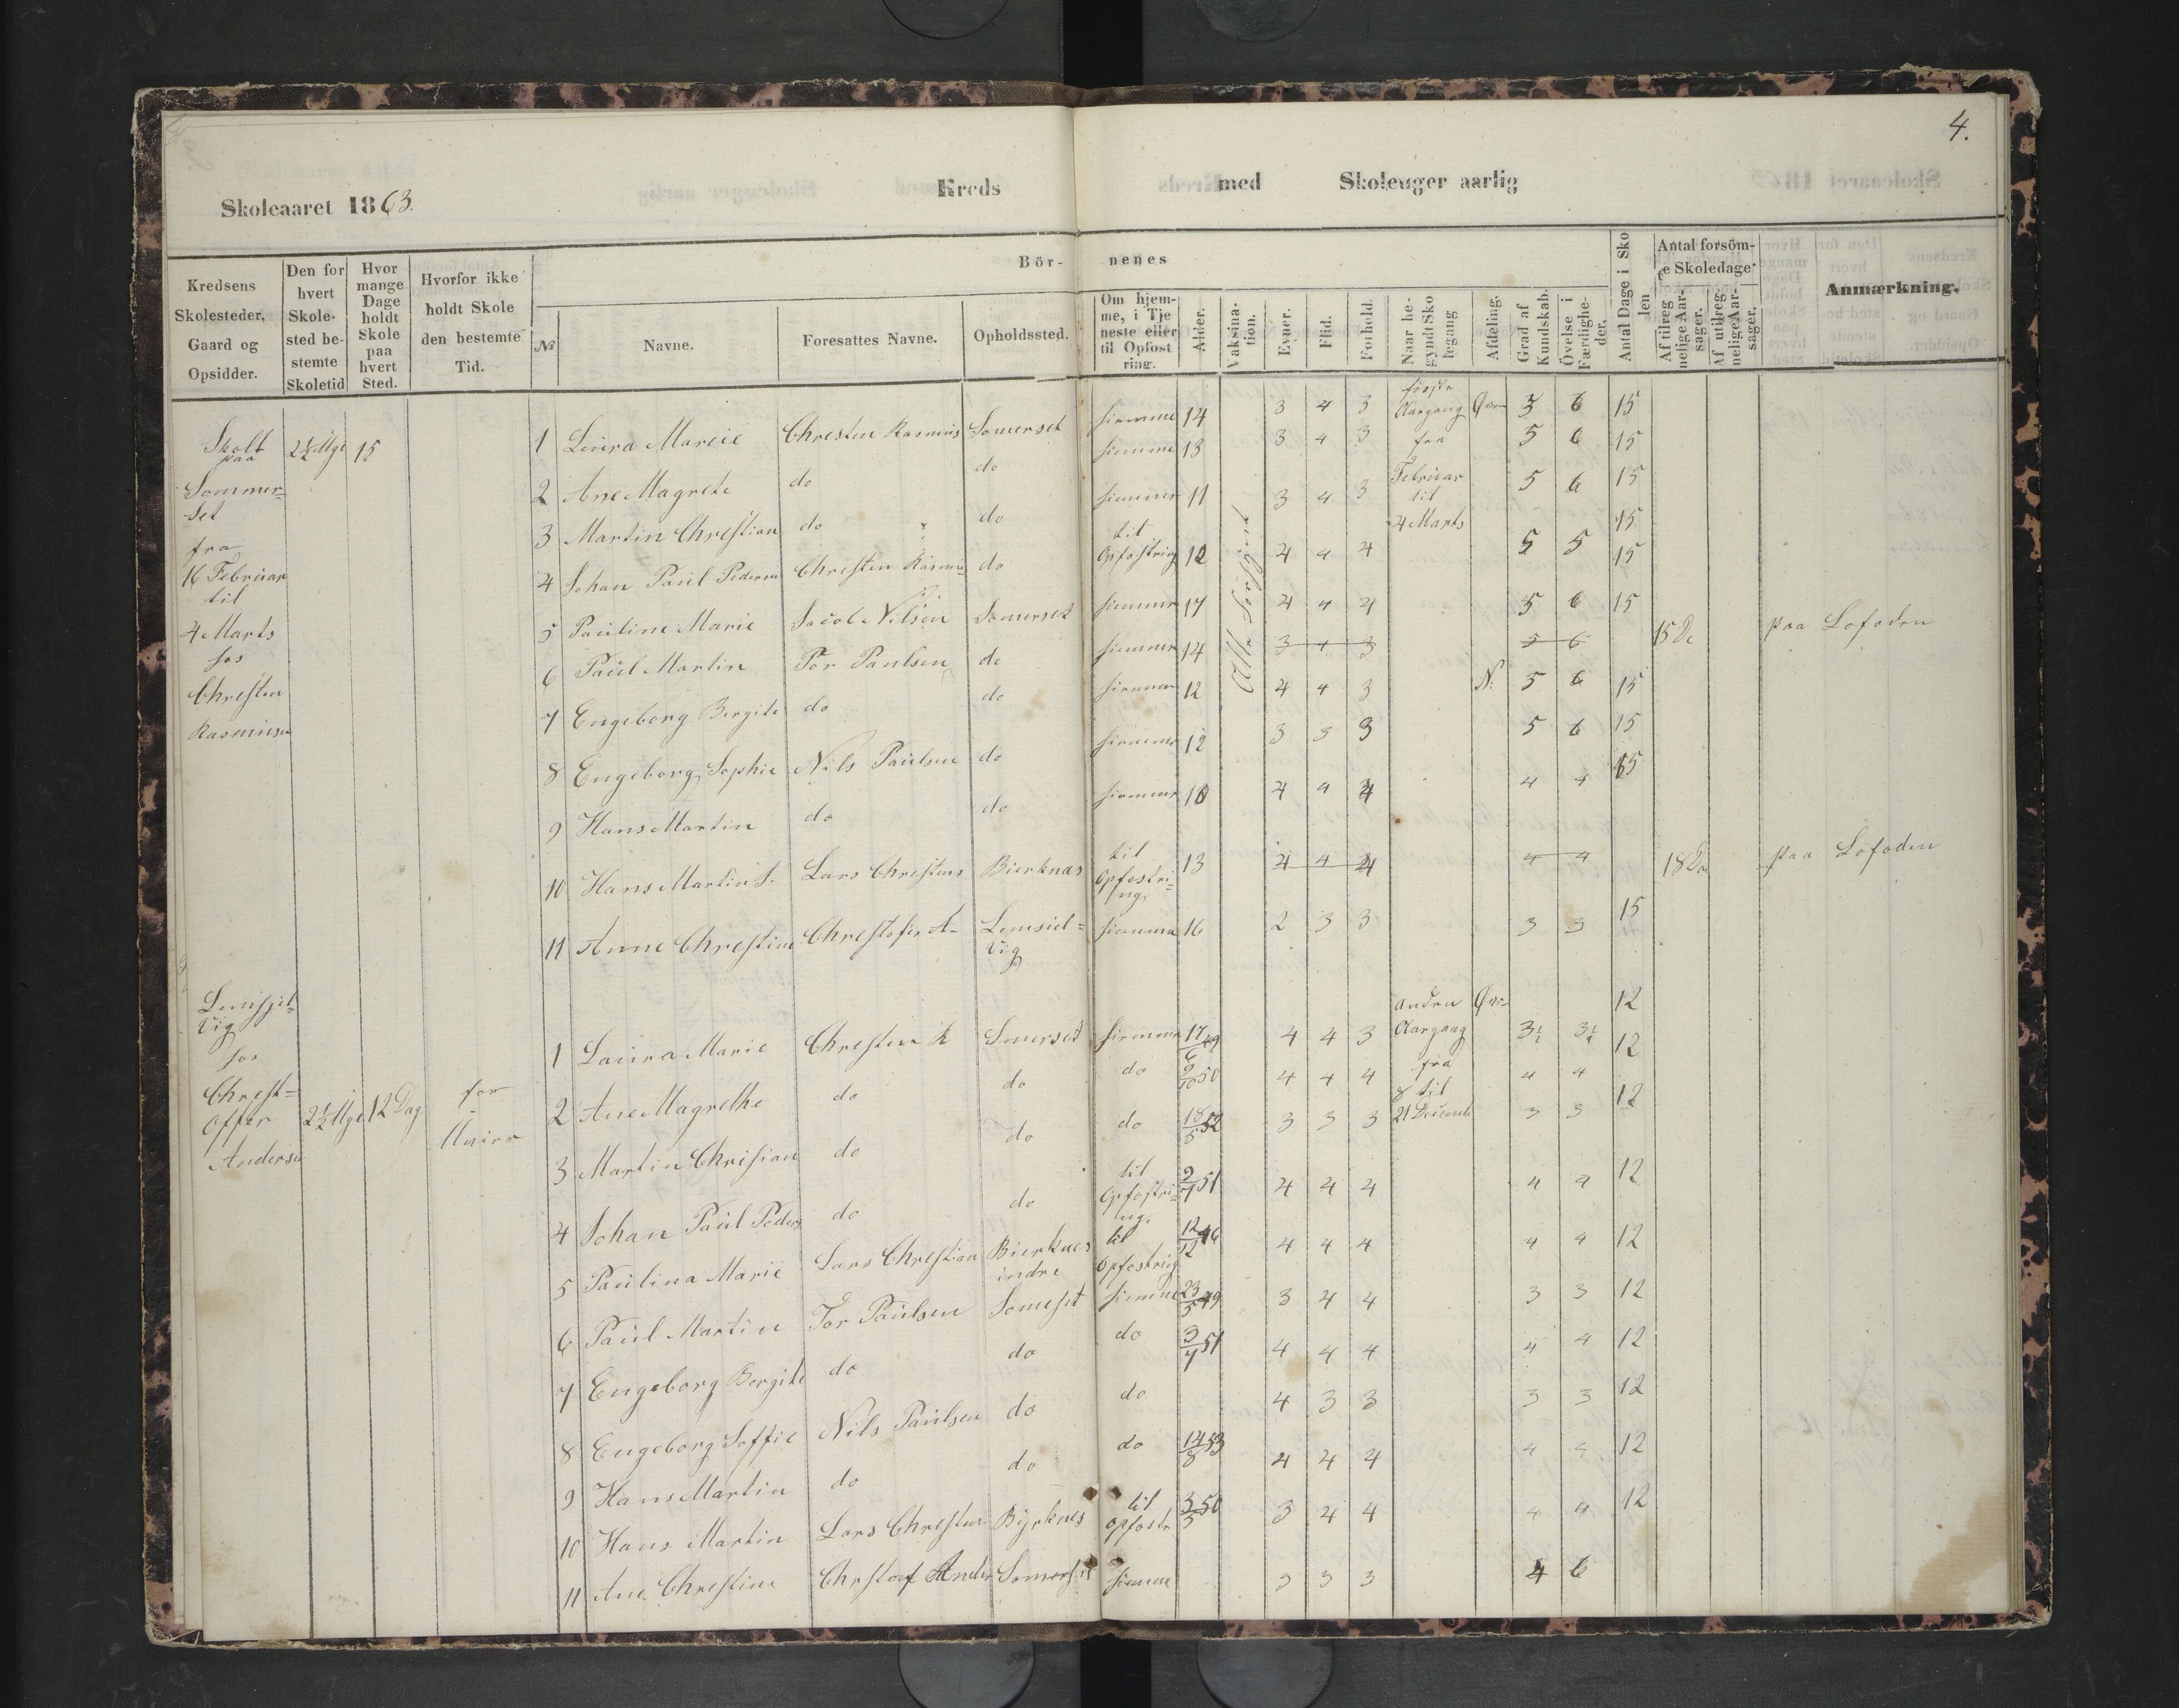 4.
Skoleaaret 1863.
Kreds med Skoleuger aarlig
Kredsens Skolesteder, Gaard og Opsidder.
Den for hvert Skolested bestemte Skoletid
Hvor mange Dage holdt Skole paa hvert Sted.
Hvorfor ikke holdt Skole den bestemte Tid.
Bör-nenes
№
Navne.
Foresattes Navne.
Opholdssted.
Om hjemme, i Tjeneste eller til Opfostring.
Alder.
Vaksination.
Evner.
Flid.
Forhold.
Naar begyndt Skolegang
Afdeling.
Grad af Kundskab.
Övelse i Færdigheder.
Antal Dage i Skolen
Antal forsömte Skoledage
Af tilregnelige Aarsager.
Af utilregnelige Aarsager.
Anmærkning.
Skolt paa Sommerset fra 16 Februar til 4 Marts hos Chresten Rasmusen
2½ Uge 15
Alle
første Aargang fra Februar til 4 Marts
1 Laura Mareie Chresten Rasmus Somerset hiemme 14 3 4 3 Øvr 5 6 15
2 Ane Magrete do do hiemme 13 3 4 3 5 6 15
3 Martin Chrestian do " do hiemme 11 3 4 3 5 6 15
4 Johan Paul Pedersen Chresten Rasmus do til Opfostring 12 4 4 4 5 5 15
15
5 Pauline Marie Jacob Nilsen Somerset hiemme 17 4 4 4 5 6 15
6 Paul Martin Tor Paulsen do hiemme 14 3 4 3 5 6 15 Da paa Lofoden
7 Engeborg Bergite do do hiemme 12 4 4 3 N. 5 6 15
8 Engeborg Sophie Nils Paulsen do hiemme 12 3 3 3 5 6 15
9 Hans Martin do do hiemme 10 4 4 4 4 4 15
10 Hans Martin S. Lars Chrestens Bierknas til Opfostring 13 4 4 4 4 4 18 Da paa Lofoden
11 Anne Chrestine Chrestofer A- Lemsielvig hiemme 16 2 3 3 3 3 15
Lemsjelvig hos Chrestoffer Andersen
2½ Uge 12 Dag for
anden Aargang fra 8 til 21 Decemb
1 Laura Marie Chresten R Smerset hiemme 17/6 49 4 4 3 Øvr 3½ 3½ 12
2 Ane Magrethe do do do 9/10 50 4 4 4 4 4 12
3 Martin Chrisian do do do 18/5 52 3 3 3 3 3 12
4 Johan Paul Peders do do til Opfostring. 2/7 51 4 4 4 4 4 12
5 Paulina Marie Lars Chrestian Bierknes indre til Opfostring 12/12 46 4 4 4 4 4 12
6 Paul Martin Tor Paulsen Somerset hiemme 23/5 49 3 4 4 3 3 12
7 Engeborg Bergite do do do 3/7 51 4 4 4 4 4 12
8 Engeborg Soffie Nils Paulsen do do 4 3 3 3 3 12
9 Hans Martin do do do 14/8 53 4 4 4 4 4 12
10 Hans Martin Lars Chresten Byrknes til opfostr 3/3 50 3 4 4 4 4 12
11 Ane Chrestine Chrstoef Ander Somerset hiemme 3 3 3 4 6